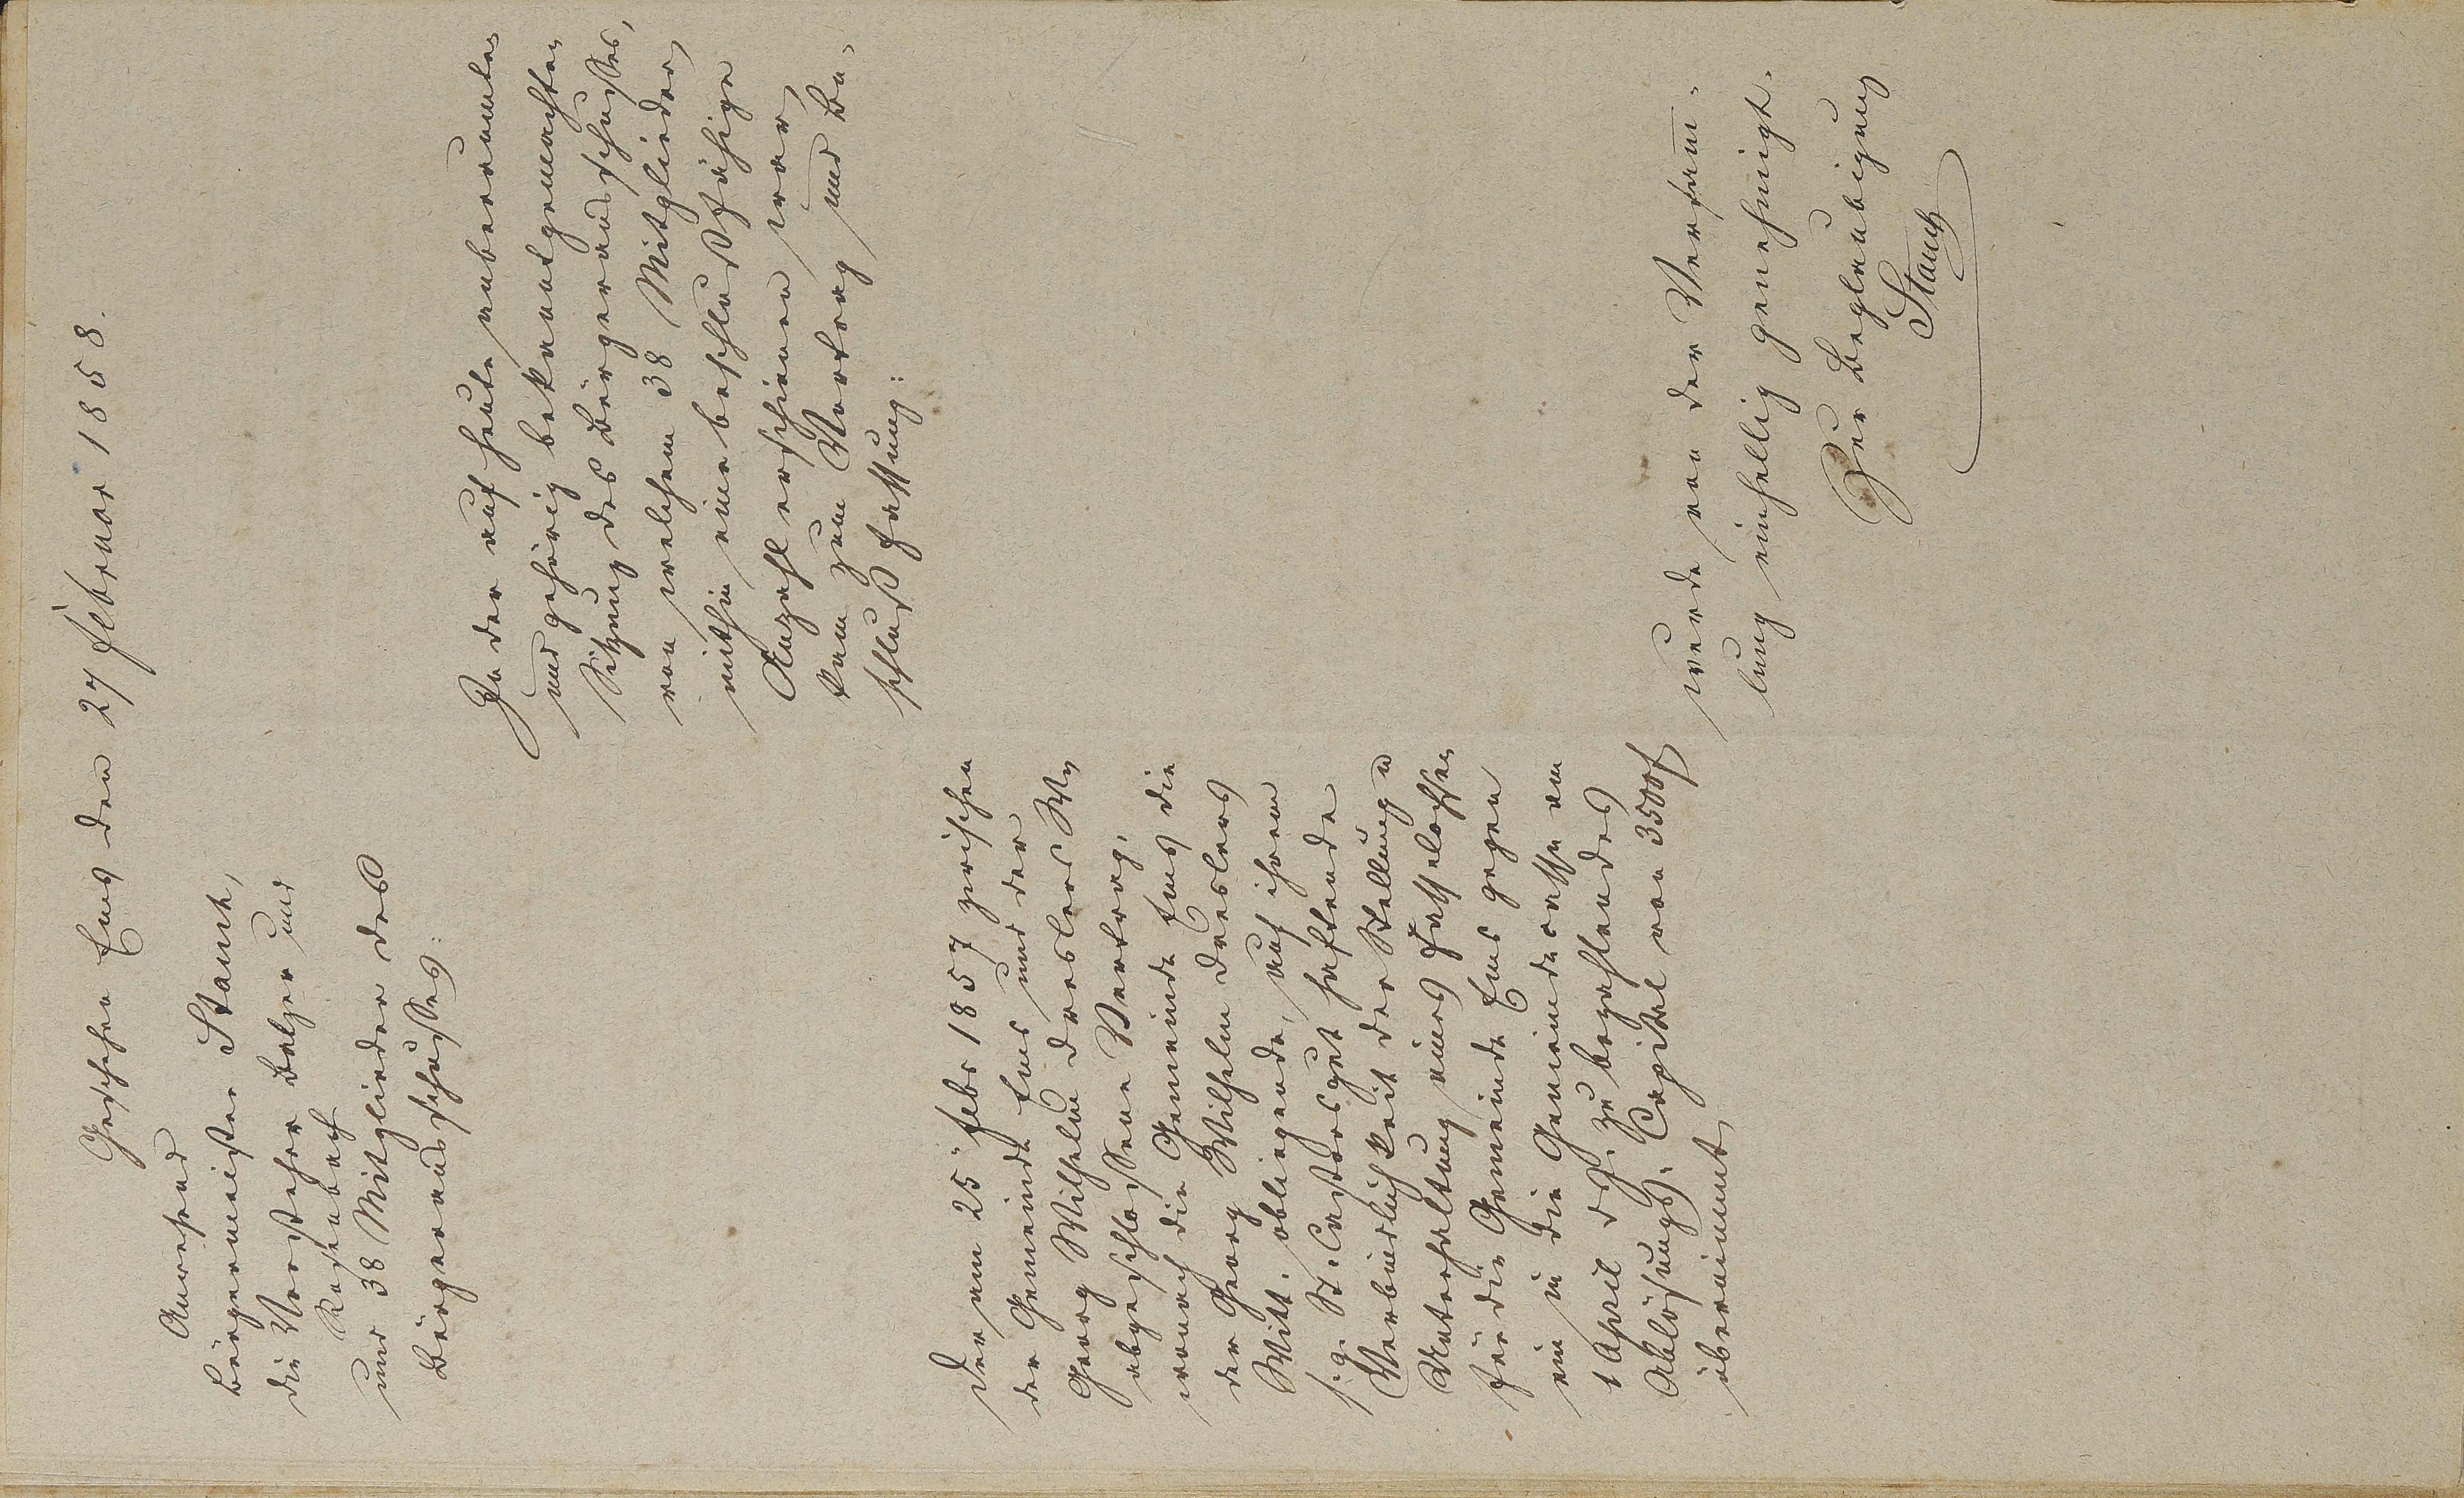 Geschehen Ems den 27 Februar 1858.
Anwesend
Bürgermeister Stauch,
die Vorsteher Balzer und
Rosenbach
und 38 Mitglieder des
Bürgerausschusses:
In der auf heute anberaumten
und gehörig bekanntgemachten
Sitzung des Bürgerausschusses,
von welchem 38 Mitglieder,
mithin eine beschlußfähige
Anzahl erschienen war,
kam zum Vortrag und Be-
schlußfassung:
Der am 25 Febr 1857 zwischen
der Gemeinde Ems und der
Georg Wilhelm Dresler Ww
abgeschlossene Vertrag,
wonach die Gemeinde Ems die
der Georg Wilhelm Dreslers
Witt. obliegende, auf ihrem
s. g. St. Castorsgut haftende
Verbindlichkeit der Stellung u
Unterhaltung eines Fasselochsen
für die Gemeinde Ems gegen
ein in die Gemeindecasse am
1 April d. J. zu bezahlendes
Ablösungs. Capital von 3500 f
übernimmt,
wurde von der Versam̄-
lung einhellig genehmigt.
Zur Beglaubigung
Stauch